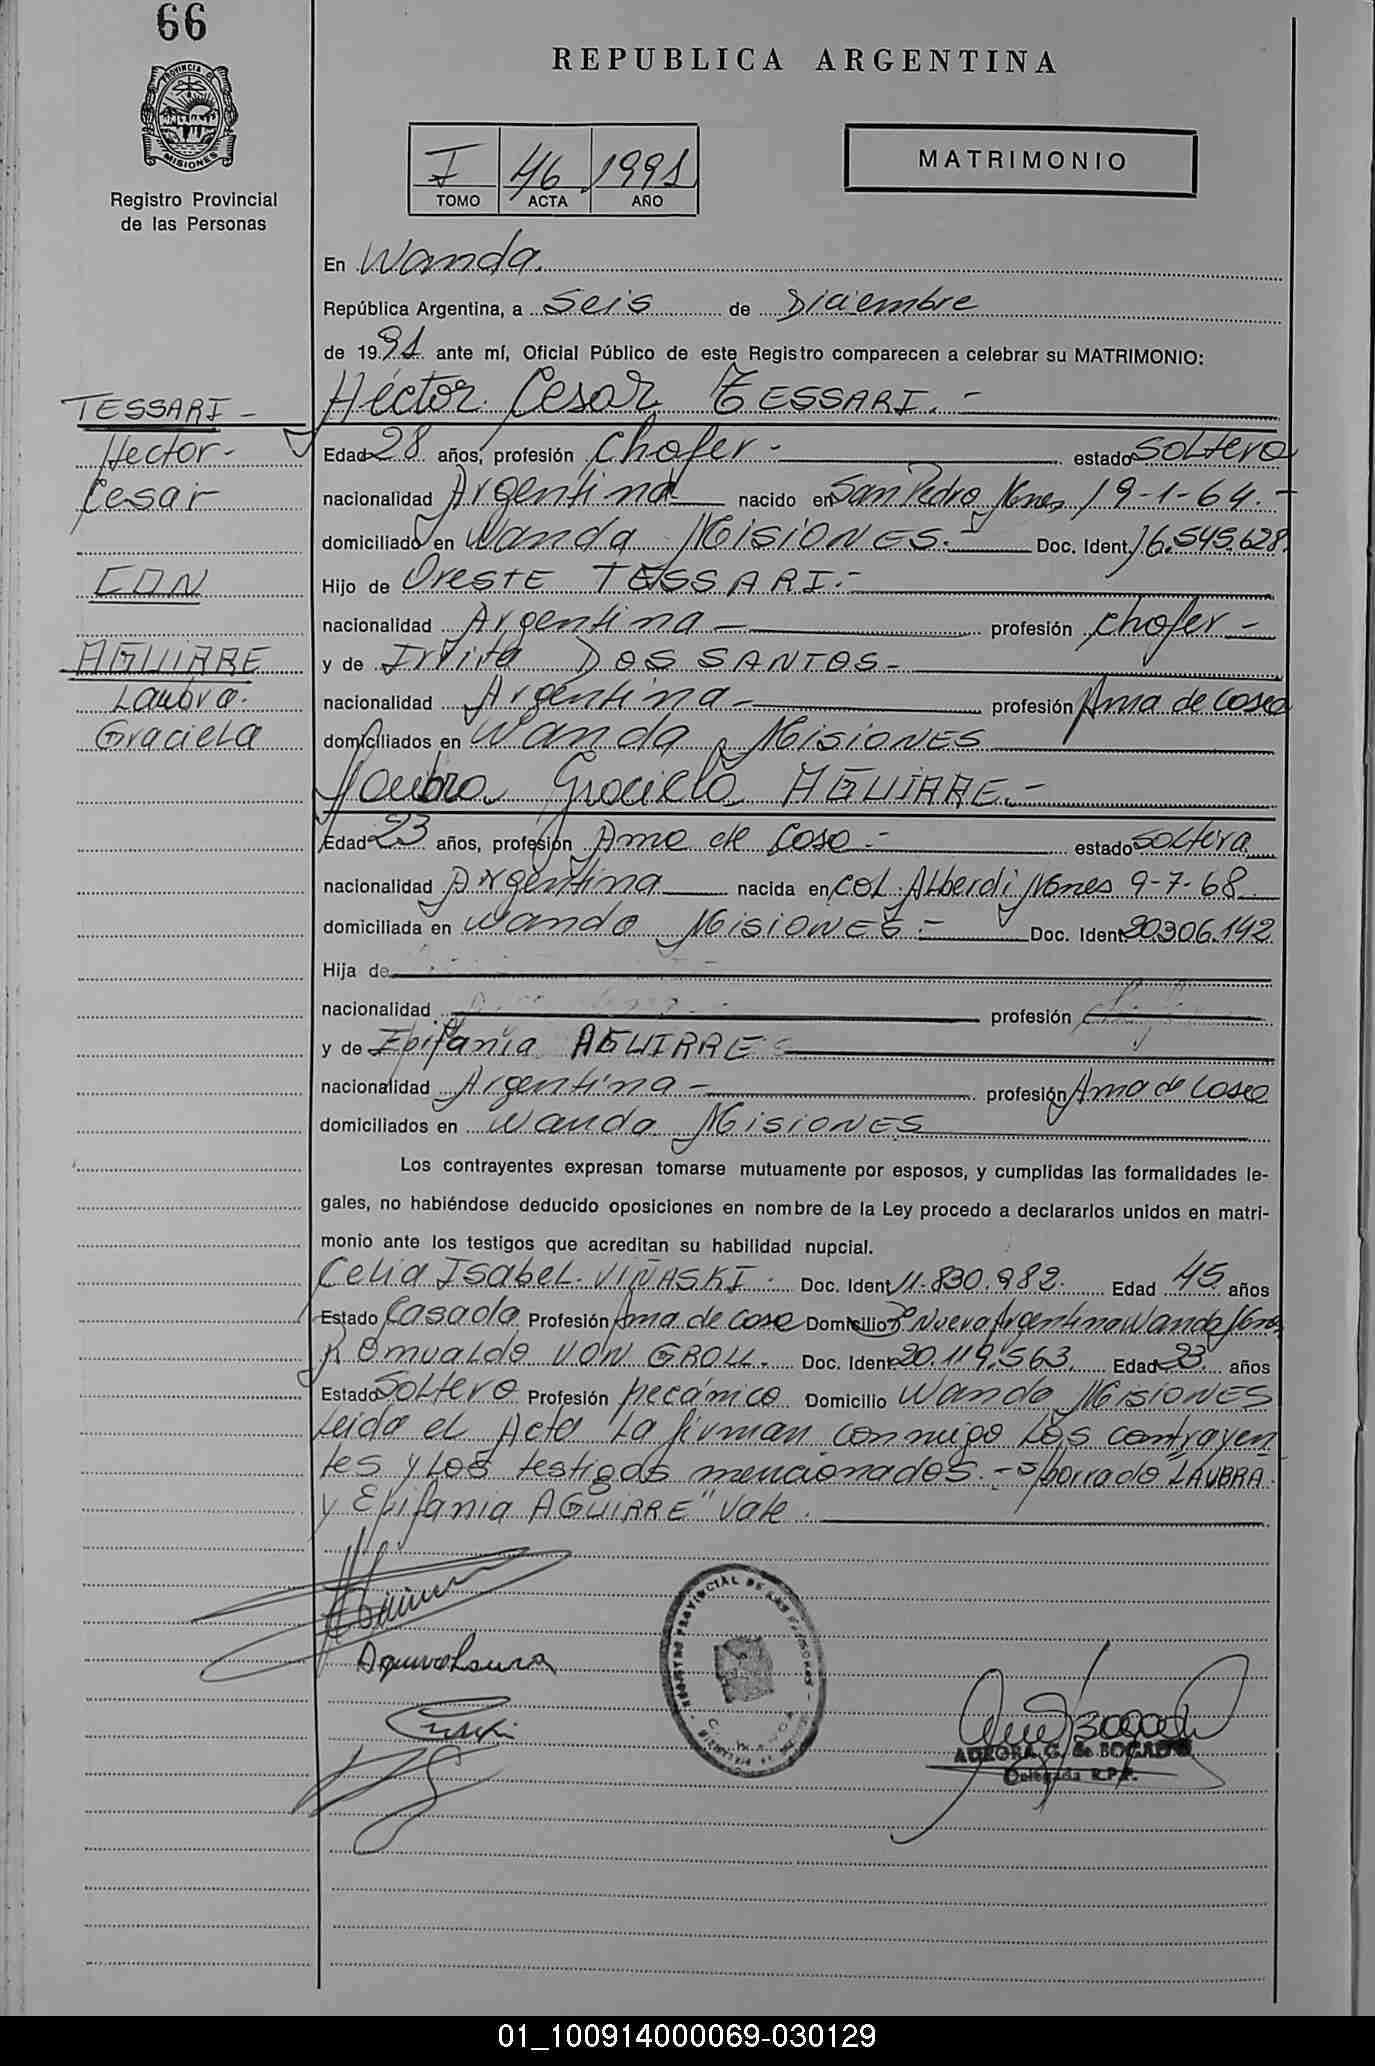 66
REPUBLICA ARGENTINA
PROVINCIA DE
MISIONES
Registro Provincial
de las Personas
I 46 1991
TOMO ACTA AÑO
MATRIMONIO
En Wanda.
República Argentina, a Seis de Diciembre
de 1991 ante mí, Oficial Público de este Registro comparecen a celebrar su MATRIMONIO:
TESSARI -
Hector -
Cesar
CON
AGUIRRE
Laubra.
Graciela
Héctor Cesar TESSARI. -
Edad 28 años, profesión Chofer - estado Soltero
nacionalidad Argentina nacido en San Pedro Mnes 19-1-64. -
domiciliado en Wanda MISIONES. - Doc. Ident. 16.545.628.
Hijo de Oreste TESSARI. -
nacionalidad Argentina - profesión chofer -
y de Irvita DOS SANTOS -
nacionalidad Argentina - profesión Ama de Casa
domiciliados en Wanda MISIONES
Laubra Graciela AGUIRRE. -
Edad 23 años, profesión Ama de Casa - estado soltera
nacionalidad Argentina nacida en COL. Alberdi Mnes 9-7-68
domiciliada en Wanda MISIONES - Doc. Ident 20.306.142
Hija de
nacionalidad profesión
y de Epifania AGUIRRE
nacionalidad Argentina - profesión Ama de Casa
domiciliados en Wanda MISIONES
Los contrayentes expresan tomarse mutuamente por esposos, y cumplidas las formalidades le-
gales, no habiéndose deducido oposiciones en nombre de la Ley procedo a declararlos unidos en matri-
monio ante los testigos que acreditan su habilidad nupcial.
Celia Isabel VIÑASKI. Doc. Ident 11.830.982. Edad 45 años
Estado Casada Profesión Ama de casa Domicilio Nueva Argentina Wanda Mnes
Romualdo VON GROLL. Doc. Ident 20.119.563. Edad 23 años
Estado Soltero Profesión Mecánico Domicilio Wanda MISIONES
Leida el Acta la firman conmigo los contrayen
tes y los testigos mencionados. - s/borrado "LAUBRA
y Epifania AGUIRRE" Vale.
Aguirre Laura
REGISTRO PROVINCIAL DE LAS PERSONAS
AURORA G. de BOGADO
Delegada R.P.P.
01_100914000069-030129